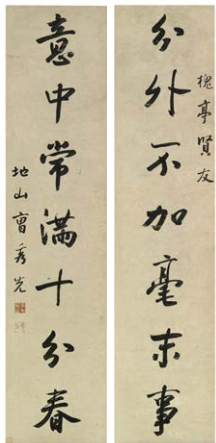 槐亭賢友
分外不加毫末事
意中常滿十分春
地山曾秀先